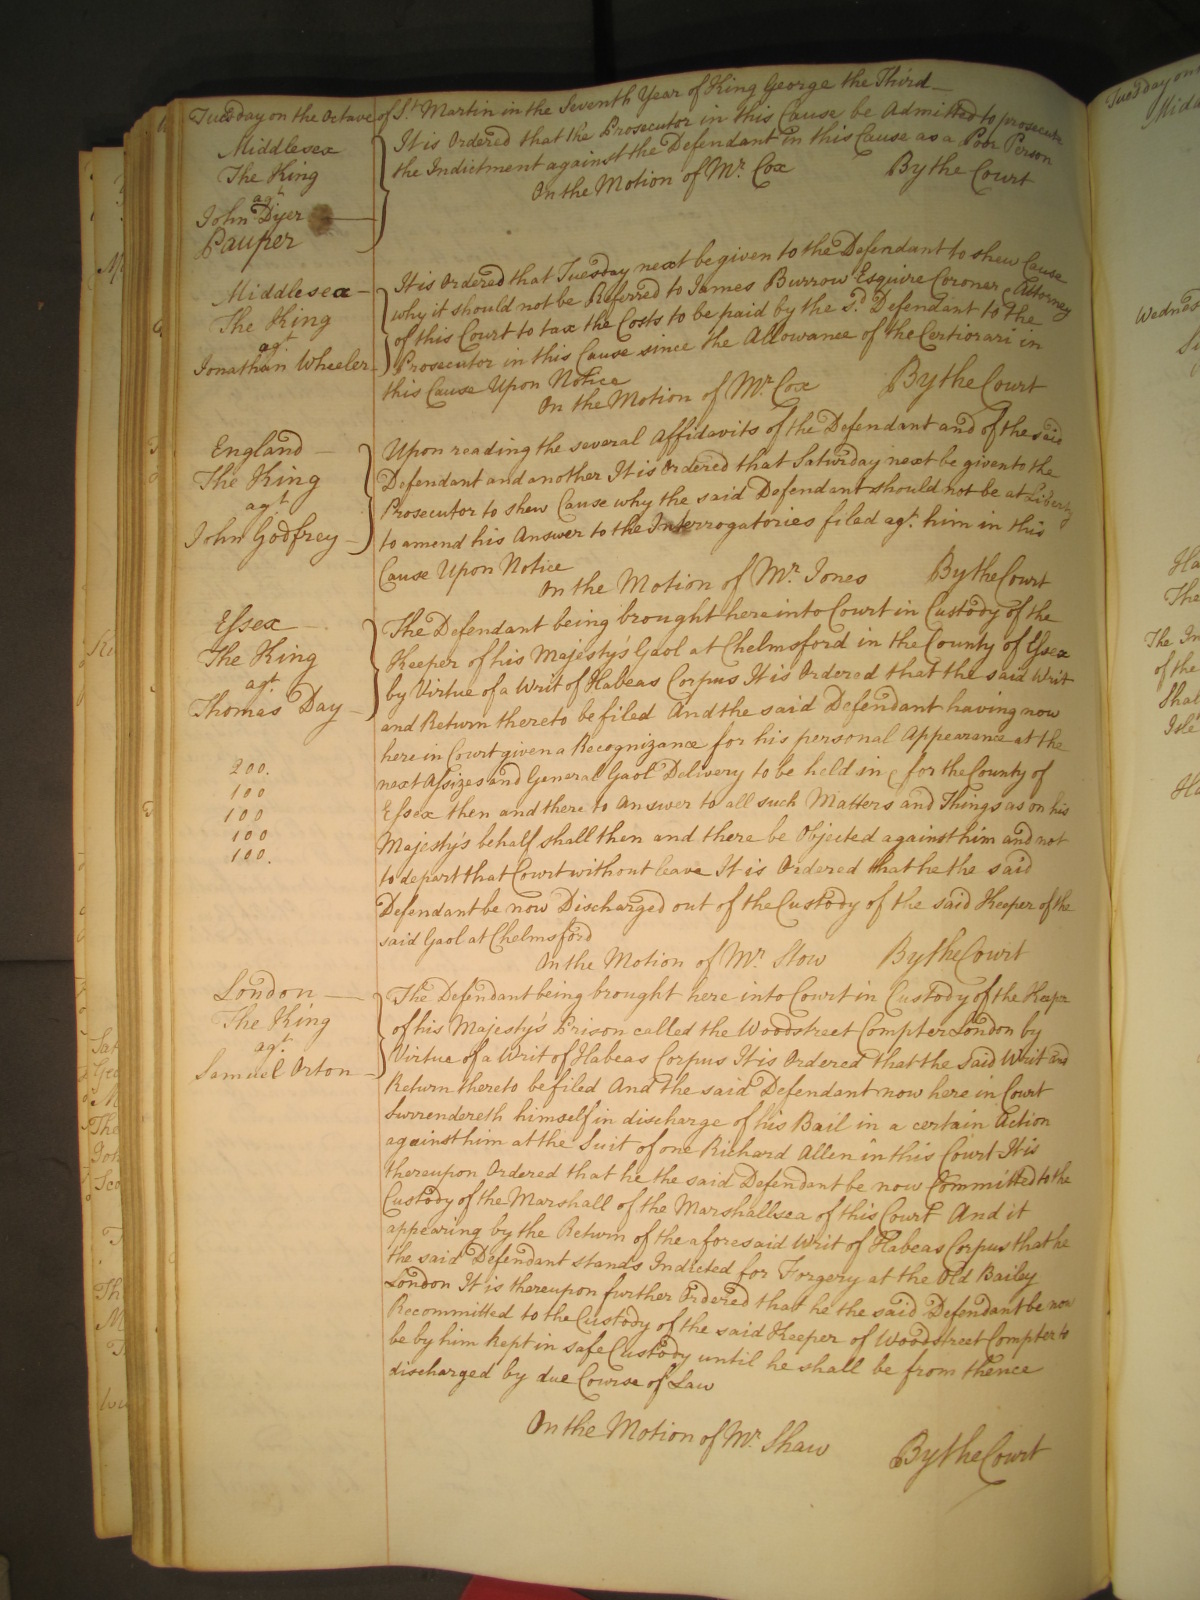 Tuesday on the Octave of St. Martin in the Seventh Year of King George the Third
Middlesex
The King
agt
John Dyer
Pauper
It is Ordered that the Prosecutor in this Cause be Admitted to prosecute
the Indictment against the Defendant in this Cause as a Poor Person
On the Motion of Mr. Cox By the Court
Middlesex
The King
agt
Jonathan Wheeler
It is Ordered that Tuesday next be given to the Defendant to shew Cause
why it should not be Referred to James Burrow Esquire Coroner & Attorney
of this Court to tax the Costs to be paid by the sd. Defendant to the
Prosecutor in this Cause since the Allowance of the Certiorari in
this Cause Upon Notice
On the Motion of Mr. Cox By the Court
England
The King
agt
John Godfrey
Upon reading the several Affidavits of the Defendant and of the said
Defendant and another It is Ordered that Saturday next be given to the
Prosecutor to shew Cause why the said Defendant should not be at Liberty
to amend his Answer to the Interrogatories filed agt. him in this
Cause Upon Notice
On the Motion of Mr. Jones By the Court
Essex
The King
agt
Thomas Day
200.
100
100
100
100.
The Defendant being brought here into Court in Custody of the
Keeper of his Majesty's Gaol at Chelmsford in the County of Essex
by Virtue of a Writ of Habeas Corpus It is Ordered that the said Writ
and Return thereto be filed And the said Defendant having now
here in Court given a Recognizance for his personal Appearance at the
next Assizes and General Gaol Delivery to be held in & for the County of
Essex then and there to Answer to all such Matters and Things as on his
Majesty's behalf shall then and there be Objected against him and not
to depart that Court without leave It is Ordered that he the said
Defendant be now Discharged out of the Custody of the said Keeper of the
said Gaol at Chelmsford
On the Motion of Mr. Stow By the Court
London
The King
agt.
Samuel Orton
The Defendant being brought here into Court in Custody of the Keeper
of his Majesty's Prison called the Woodstreet Compter London by
Virtue of a Writ of Habeas Corpus It is Ordered that the Said Writ and
Return thereto be filed And the said Defendant now here in Court
Surrendereth himself in discharge of his Bail in a certain Action
against him at the Suit of one Richard Allen in this Court It is
thereupon Ordered that he the said Defendant be now Committed to the
Custody of the Marshall of the Marshallsea of this Court And it
appearing by the Return of the aforesaid Writ of Habeas Corpus that he
the said Defendant stands Indicted for Forgery at the Old Bailey
London It is thereupon further Ordered that he the said Defendant be now
Recommitted to the Custody of the said Keeper of Woodstreet Compter to
be by him kept in safe Custody until he shall be from thence
discharged by due Course of Law
On the Motion of Mr. Shaw By the Court
Tuesday on